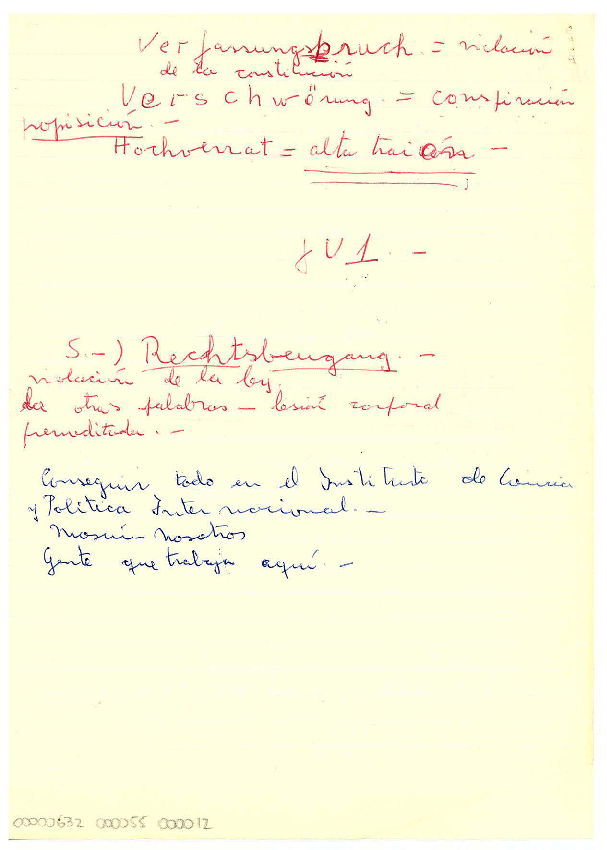 Verfassungsbruch. = violación
de la constitución
Verschwörung. = conspiración
propisición. -
Hochverrat = alta traición -
JV1. -
S.-) Rechtsbeugang. -
violación de la ley,
otras palabras - lesión corporal
premeditada. -
Conseguir todo en el Instituto de Ciencia
y Política Internacional. -
nosotros
Gente que trabaja aquí. -
00000632 000055 000012